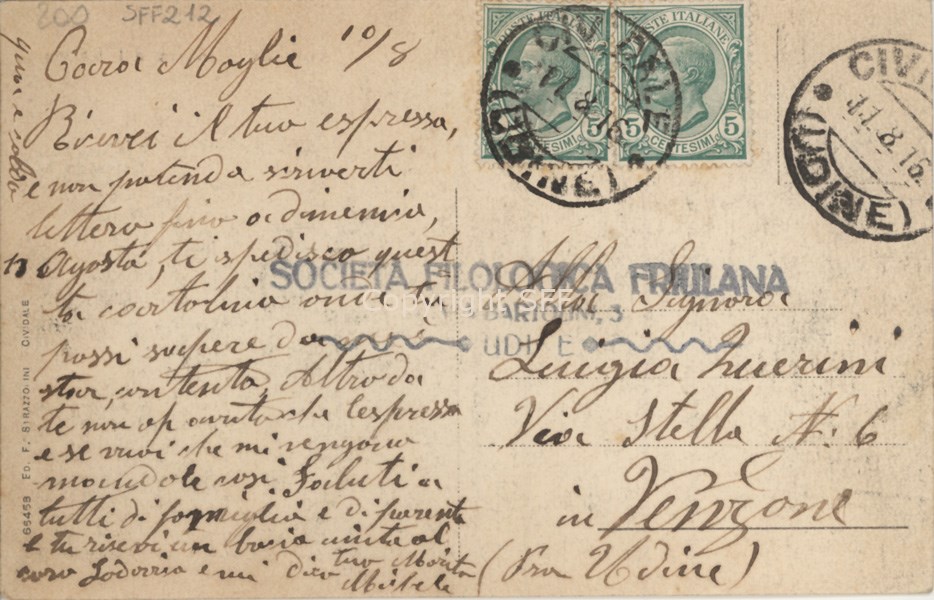 200 SFF212
Cara Moglie 10/8
Ricevei il tuo espresso,
e non potendo scriverti
lettera fino a dimenica,
13 Agosto, ti spedisco quest
ta cartolina onde tu
possi sapere da
star contenta, Altro da
te non che l'espresso
e se vuoi che mi vengano
mandole così. Saluti a
tutti di famiglia e di parente
e tu ricevi un bacio unita al
caro Lodovico e mi dico tuo Marito
Michele
POSTE ITALIANE
POSTE ITALIANE
5 CENTESIMI
5 CENTESIMI 5
CIVIDALE
11.8.16
(UDINE)
CIVI
11.8.16
(UDINE)
SOCIETÀ FILOLOGICA FRIULANA
Copyright SFF
BARTOLINI, 3
UDINE
Alla Signora
Luigia Querini
Via Stella N. 6
in Venzone
(Pra Udine)
66459 ED. F. STRAZZOLINI CIVIDALE